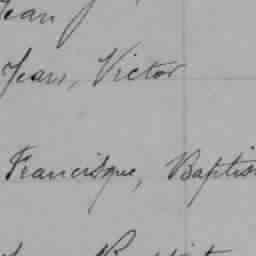 Jean
Jean, Victor
Francisque, Baptis